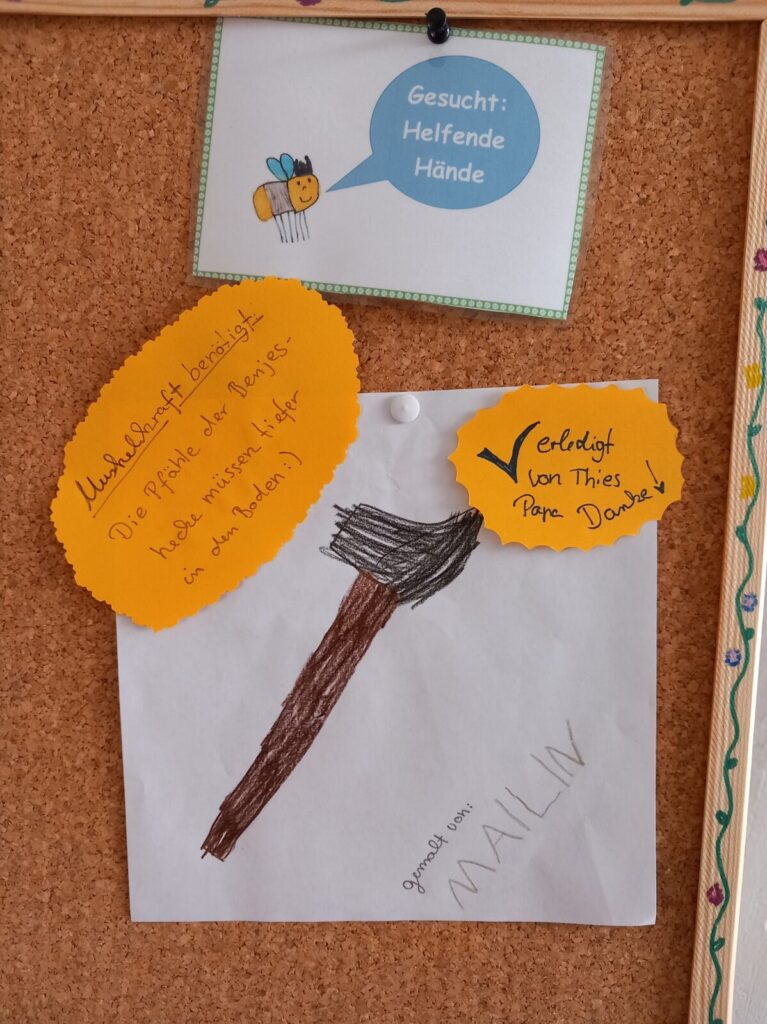 Gesucht:
Helfende
Hände
Muskelkraft benötigt:
Die Pfähle der Benjes-
hecke müssen tiefer
in den Boden:)
✓ erledigt
von Thies
Papa Danke!
gemalt von:
MAILIN